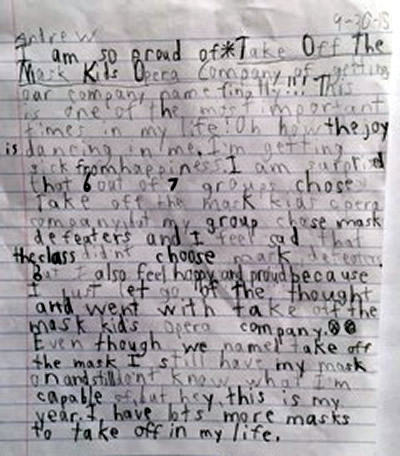 9-30-15
Andre W
I am so proud of*Take Off The
Mask Kids Opera Company of getting
our company name finally!!! This
is one of the most important
times in my life! Oh how the joy
is dancing in me. I'm getting
sick from happiness. I am surprised
that 6 out of 7 groups chose
Take off the mask kids opera
company, but my group chose mask
defeaters and I feel sad that
the class didn't choose mask defeaters
But I also feel happy and proud because
I just let go of the thought
and went with take off the
mask kids opera company.
Even though we named take off
the mask I still have my mask
on and still don't know what I'm
capable of, but hey, this is my
year. I have lots more masks
to take off in my life.